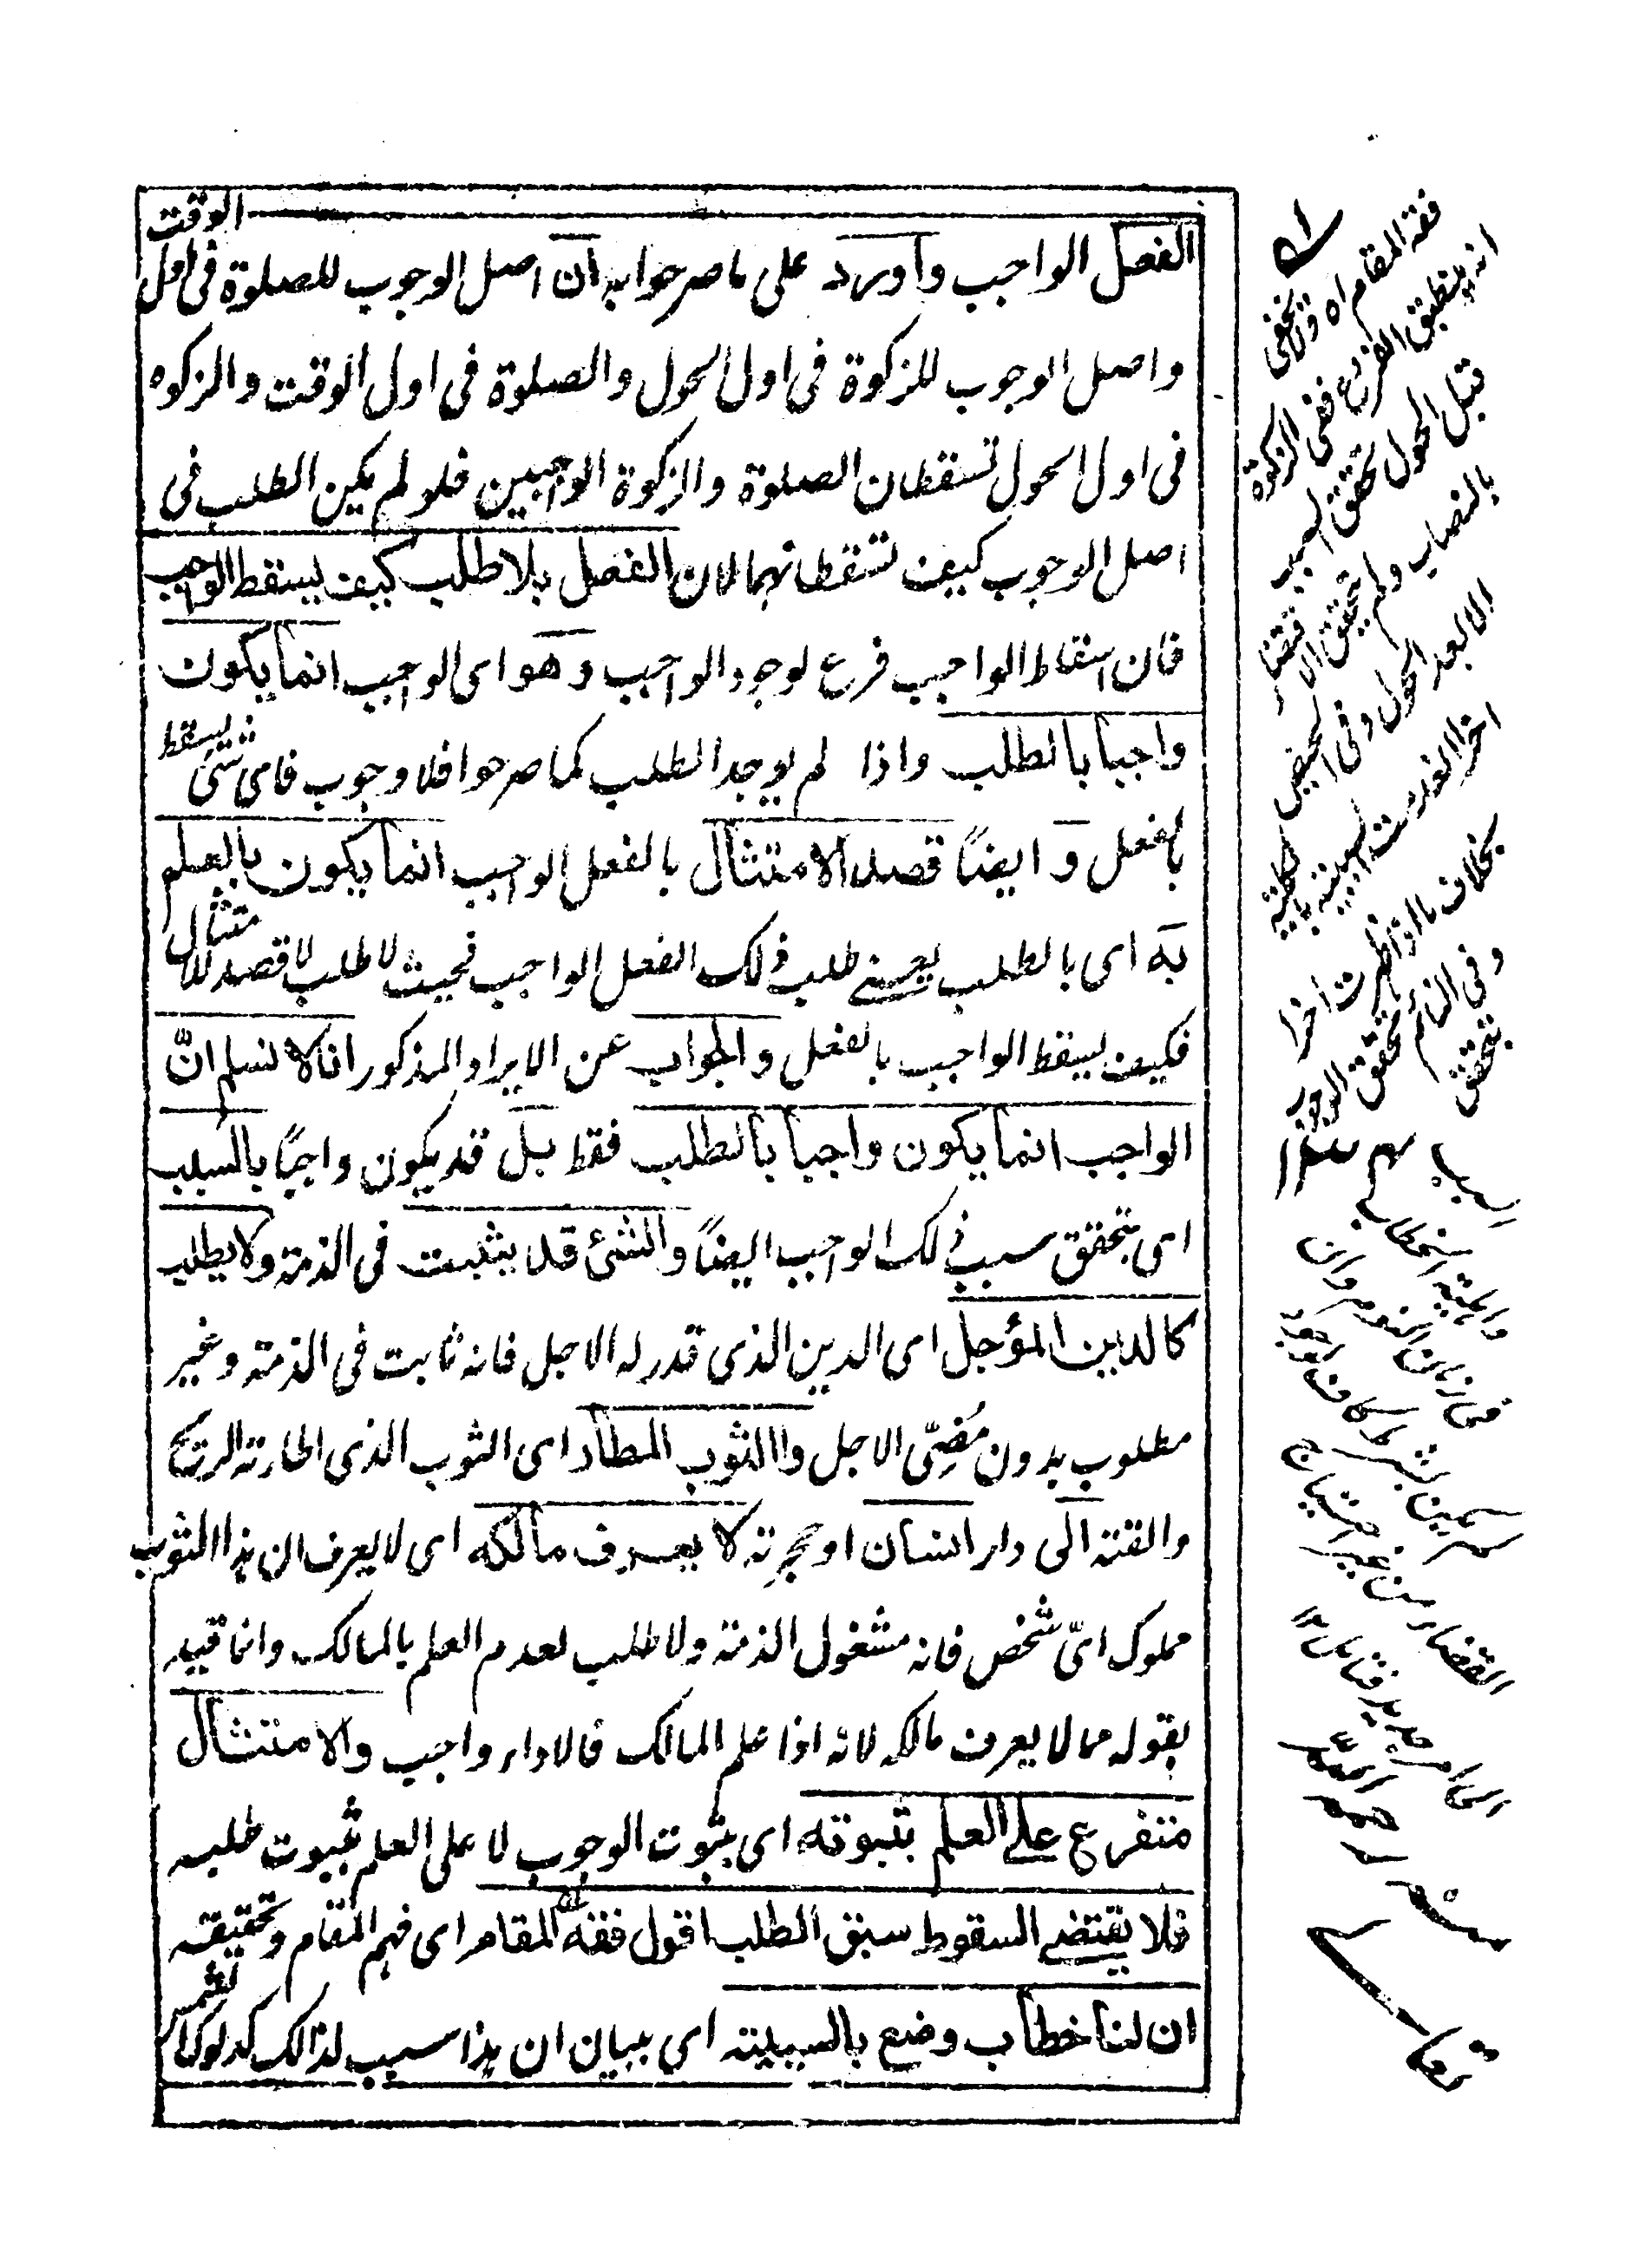 الفعل الواجب وأورد على ما صرحوا به ان اصل الوجوب للصلوة فى اول الوقت
واصل الوجوب للزكوة فى اول الحول والصلوة فى اول الوقت والزكوه
فى اول الحول تسقطان الصلوة والزكوة الواجبين فلو لم يكن الطلب فى
اصل الوجوب كيف تسقطانهما لان الفعل بلا طلب كيف يسقط الواجب
فان اسقاط الواجب فرع لوجود الواجب وهو اى الواجب انما يكون
واجبا بالطلب واذا لم يوجد الطلب كما صرحوا فلا وجوب فاى شئ يسقط
بالفعل و ايضاً قصد الامتثال بالفعل الواجب انما يكون بالعلم
به اى بالطلب يعنے طلب ذلك الفعل الواجب فحيث لا طلب لا قصد للامتثال
فكيف يسقط الواجب بالفعل والجواب عن الايراد المذكور انا لا نسلم انّ
الواجب انما يكون واجبا بالطلب فقط بل قد يكون واجبًا بالسبب
اى بتحقق سبب ذلك الواجب ايضاً والشئ قد يثبت فى الذمة ولا يطلب
كالدين المؤجل اى الدين الذى قدر له الاجل فانه ثابت فى الذمة وغير
مطلوب بدون مُضِىّ الاجل واالثوب المطار اى الثوب الذى اطارته الريح
والقته الى دار انسان او حجرته لا يعرف مالكه اى لا يعرف ان هذا الثوب
مملوك اىّ شخص فانه مشغول الذمة ولا طلب لعدم العلم بالمالك وانما قيد
بقوله مما لا يعرف مالكه لانه اذا علم المالك فالاداء واجب والامتثال
متفرع علے العلم بثبوته اى بثبوت الوجوب لا على العلم بثبوت طلبه
فلا يقتضے السقوط سبق الطلب اقول فقه المقام اى فهم المقام وتحقيقه
ان لنا خطاب وضع بالسببية اى ببيان ان هذا سبب لذالك كدلوك الشمس
فقه المقام اه ولا يخفى
انه ينطبق الفرع ففى الزكوة
قبل الحول تحقق السبب
بالنصاب ولم
الا بعد الحول وفى
بخلاف ما اذا ظهرت اخرا
وفى النائم تحقق الوجوب
بتحقق
سبب